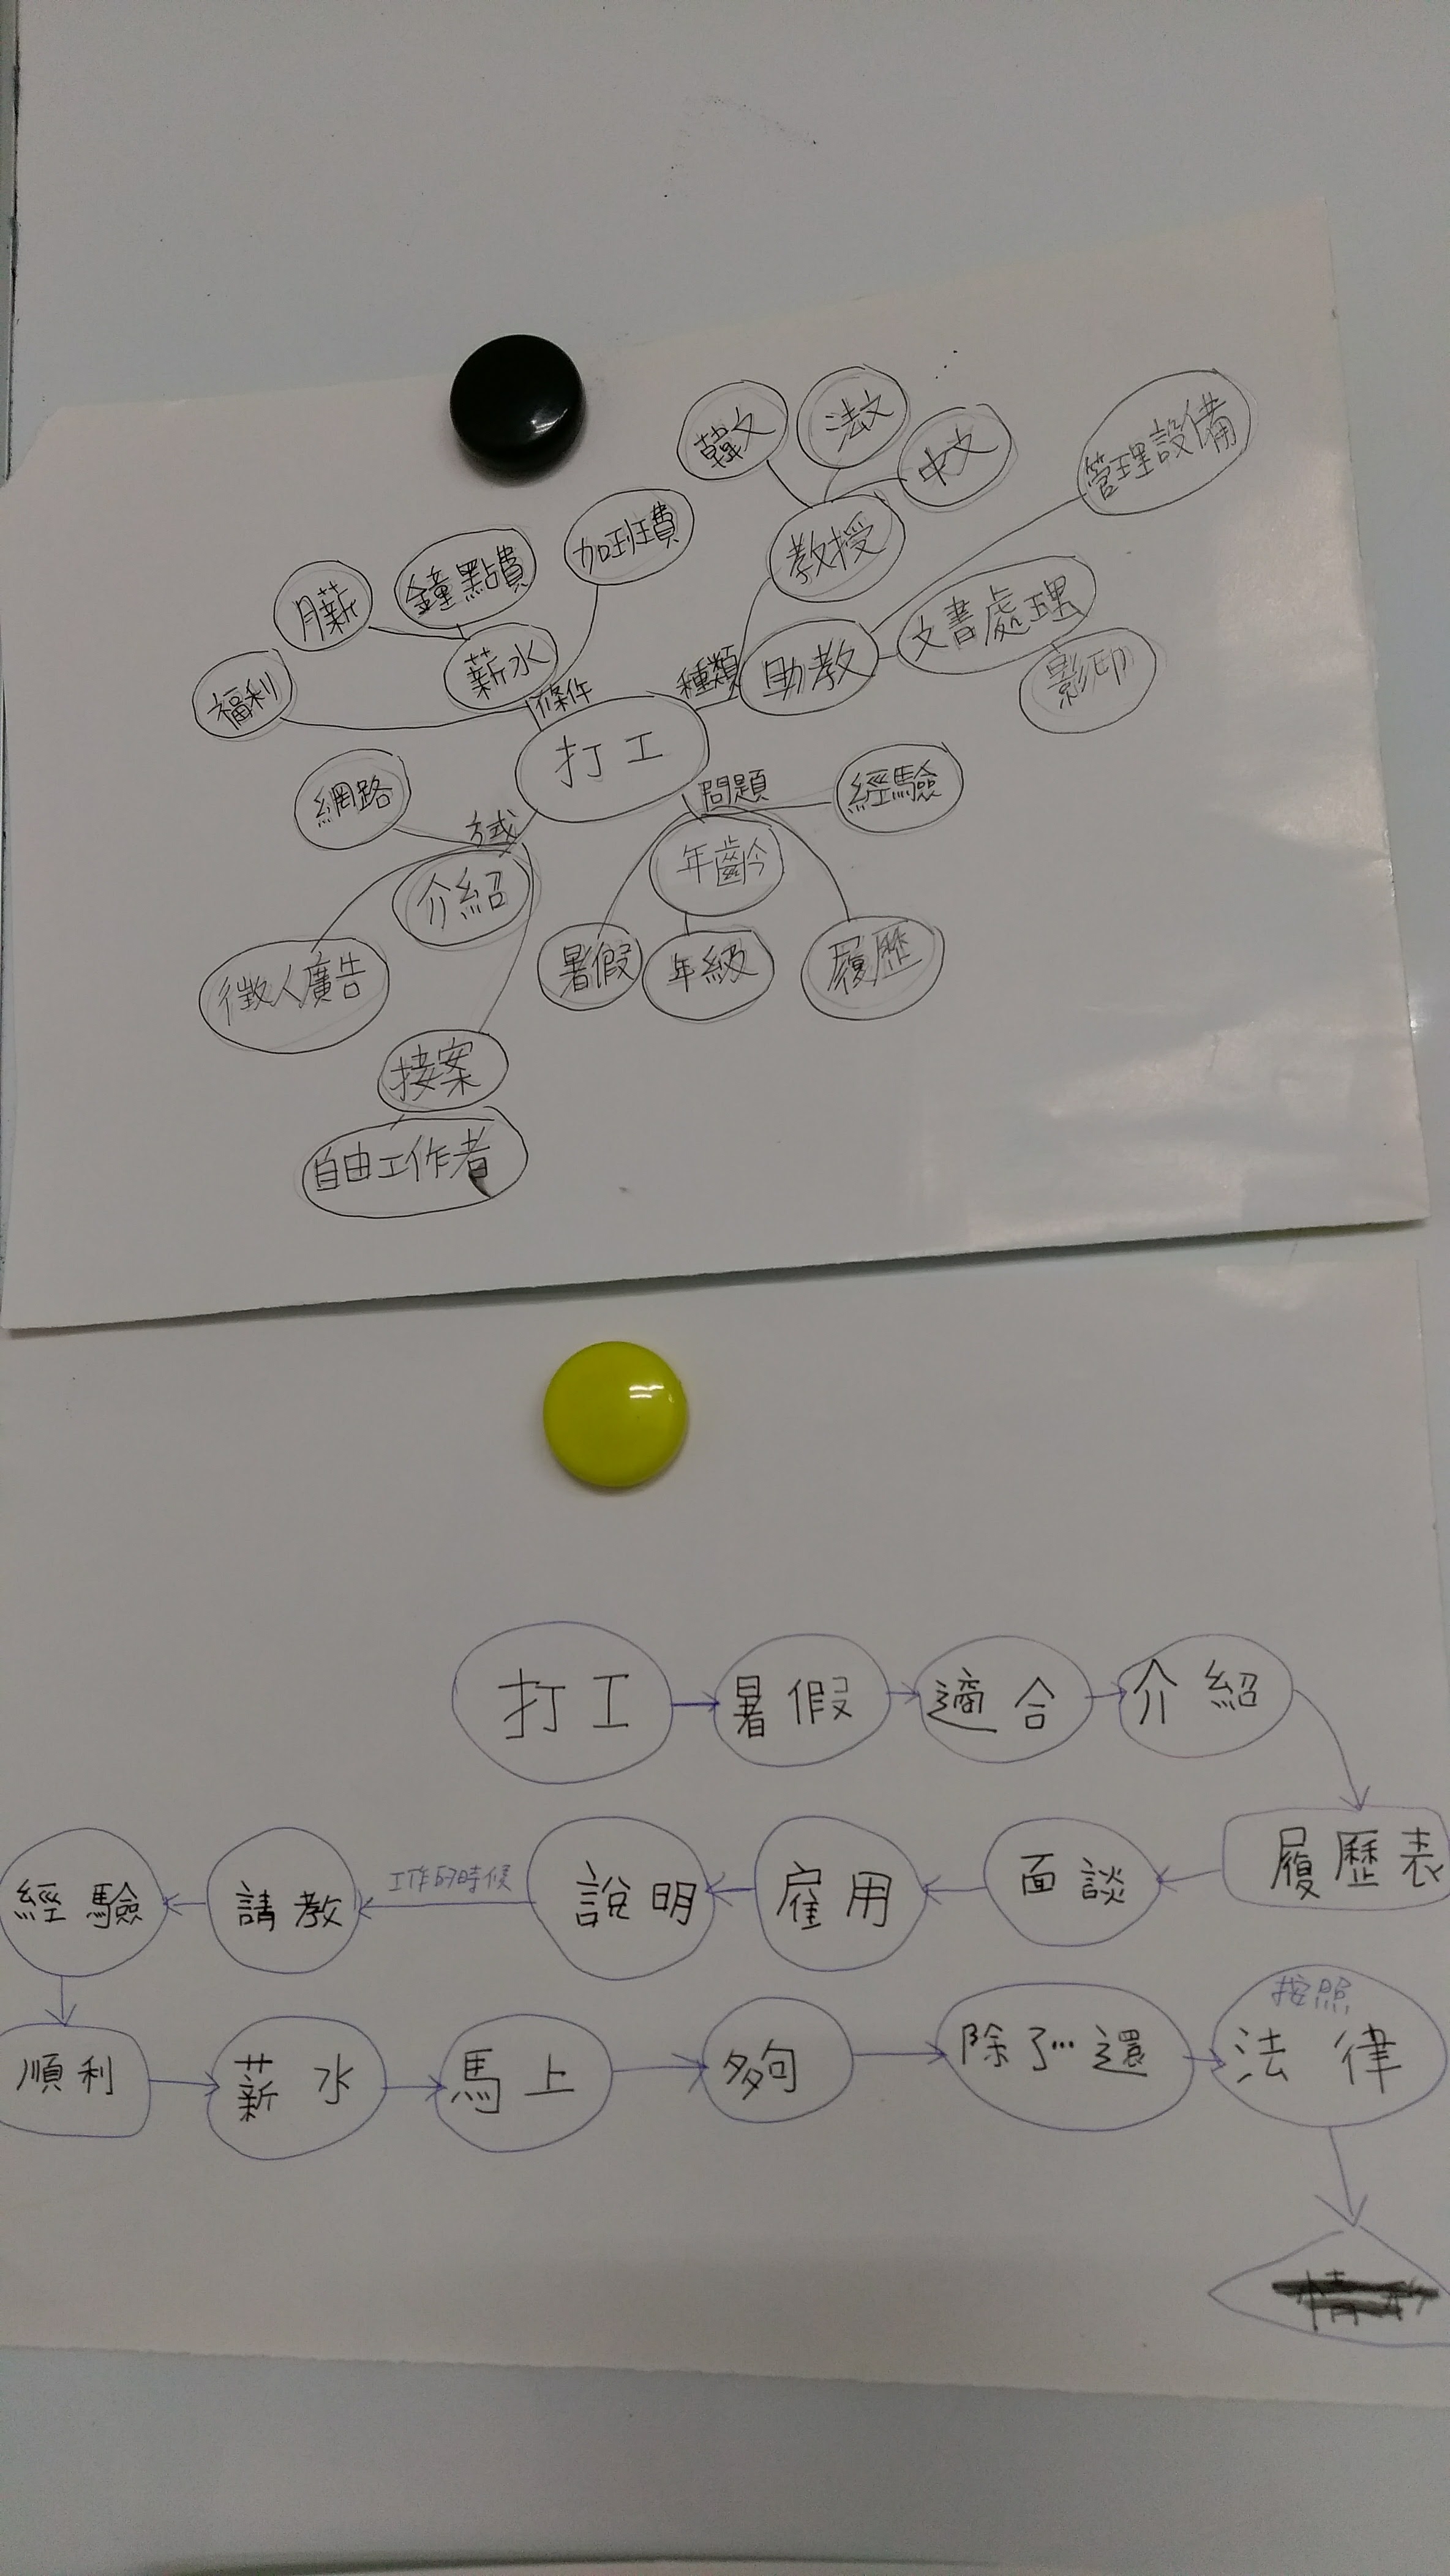 韓文 法文 中文
管理設備
教授
加班費
鐘點費
月薪
薪水
福利
條件
種類
助教
文書處理
影印
打工
網路
方式
介紹
徵人廣告
接案
自由工作者
問題
經驗
年齡
暑假 年級 履歷
打工 暑假 適合 介紹
履歷表
經驗 請教 工作的時候 說明 雇用 面談
順利 薪水 馬上 夠 除了…還 按照
法律